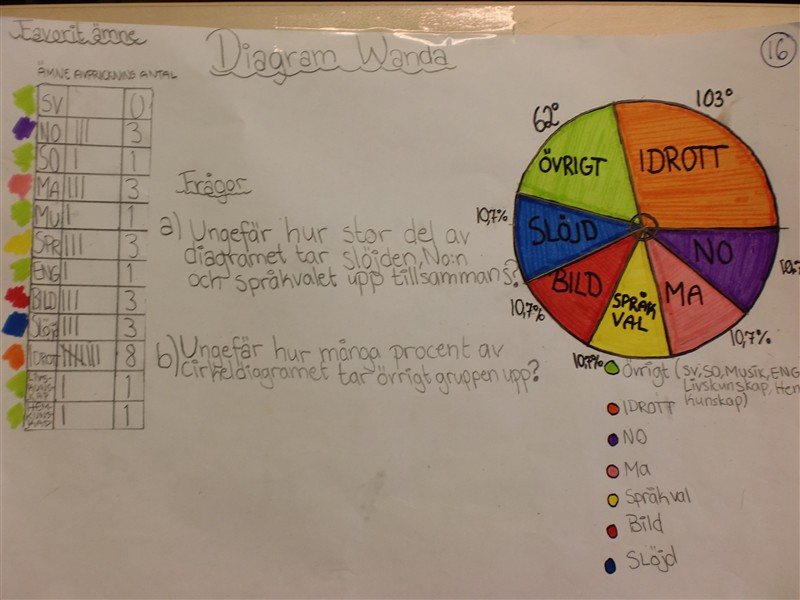 Favorit ämne
Diagram Wanda
16
ÄMNE AVPRICKNING ANTAL
SV 0
NO ||| 3
SO | 1
MA ||| 3
MU | 1
SPR ||| 3
ENG | 1
BILD ||| 3
Slöjd ||| 3
IDROTT 8
LIVS KUNS KAP | 1
HEM KUNS KAP | 1
Frågor
a) Ungefär hur stor del av
diagramet tar slöjden, No:n
och språkvalet upp tillsammans?
b) Ungefär hur många procent av
cirkeldiagramet tar övrigt gruppen upp?
103°
62°
ÖVRIGT
IDROTT
10,7%
SLÖJD
NO
10,7
BILD
SPRÅK
VAL
MA
10,7%
10,7%
10,7%
Övrigt (SV, SO, Musik, ENG
Livskunskap, Hem
Kunskap)
IDROTT
NO
Ma
Språkval
Bild
SLöjd